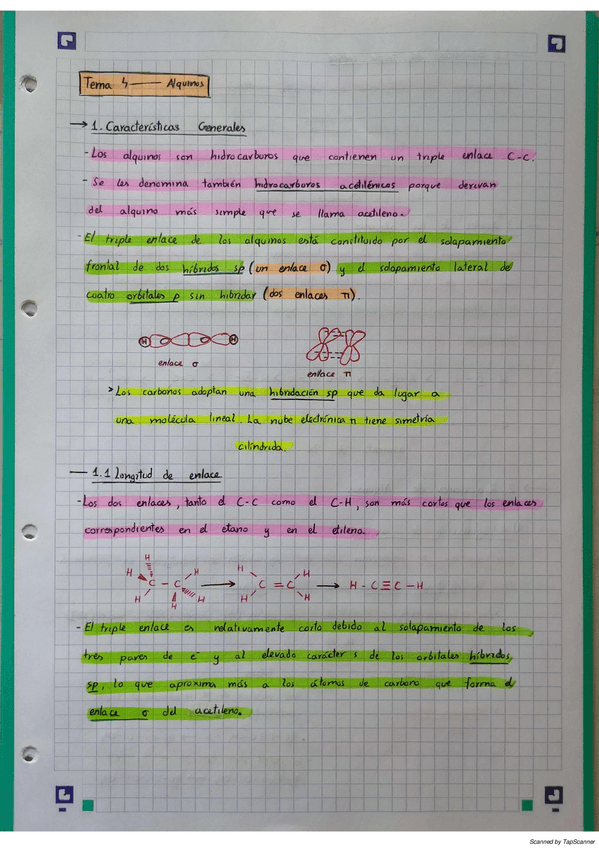 Tema 4 —— Alquinos
→ 1. Características Generales
- Los alquinos son hidrocarburos que contienen un triple enlace C-C.
- Se les denomina también hidrocarburos acetilénicos porque derivan
del alquino más simple que se llama acetileno.
- El triple enlace de los alquinos está constituido por el solapamiento
frontal de dos híbridos sp (un enlace σ) y el solapamiento lateral de
cuatro orbitales p sin hibridar (dos enlaces π).
H H
enlace σ
enlace π
> Los carbonos adoptan una hibridación sp que da lugar a
una molécula lineal. La nube electrónica π tiene simetría
cilíndrica.
— 1.1 Longitud de enlace
- Los dos enlaces, tanto el C-C como el C-H, son más cortos que los enlaces
correspondientes en el etano y en el etileno.
H H H H H
C - C → C = C → H - C ≡ C - H
H H H H H
- El triple enlace es relativamente corto debido al solapamiento de los
tres pares de e⁻ y al elevado carácter s de los orbitales híbridos
sp, lo que aproxima más a los átomos de carbono que forma el
enlace σ del acetileno.
Scanned by TapScanner